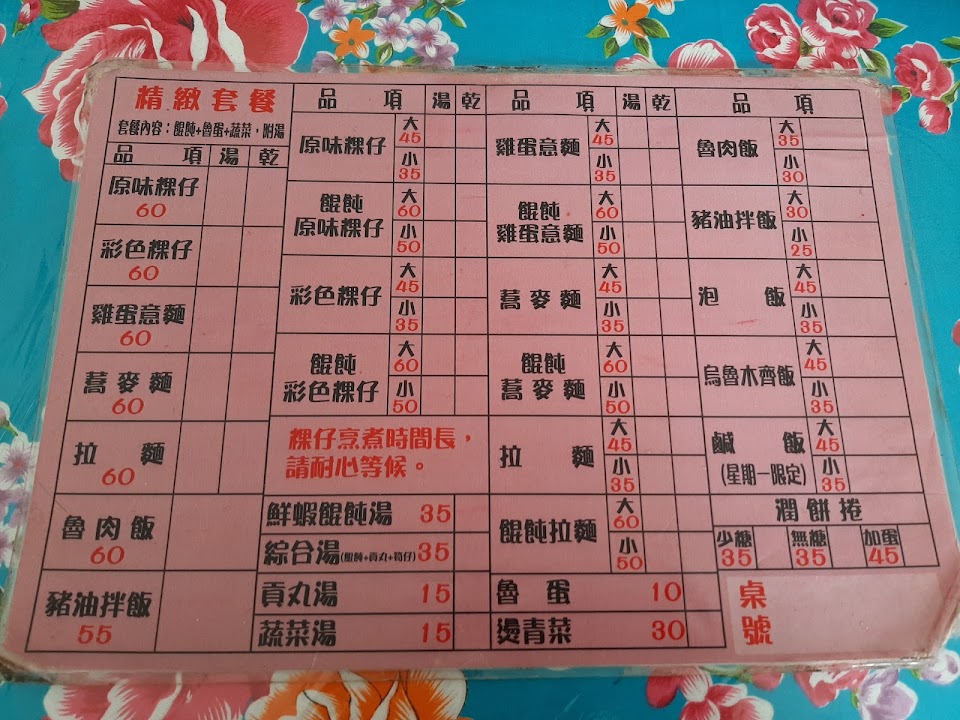 精緻套餐
套餐內容：餛飩+魯蛋+蔬菜，附湯
品項 湯 乾
原味粿仔
60
彩色粿仔
60
雞蛋意麵
60
蕎麥麵
60
拉麵
60
魯肉飯
60
豬油拌飯
55
品項 湯 乾
原味粿仔 大 45 小 35
餛飩
原味粿仔 大 60 小 50
彩色粿仔 大 45 小 35
餛飩
彩色粿仔 大 60 小 50
粿仔烹煮時間長，
請耐心等候。
鮮蝦餛飩湯 35
綜合湯(餛飩+貢丸+筍仔) 35
貢丸湯 15
蔬菜湯 15
品項 湯 乾
雞蛋意麵 大 45 小 35
餛飩
雞蛋意麵 大 60 小 50
蕎麥麵 大 45 小 35
餛飩
蕎麥麵 大 60 小 50
拉麵 大 45 小 35
餛飩拉麵 大 60 小 50
魯蛋 10
燙青菜 30
品項
魯肉飯 大 35 小 30
豬油拌飯 大 30 小 25
泡飯 大 45 小 35
烏魯木齊飯 大 45 小 35
鹹飯 大 45 小 35
(星期一限定)
潤餅捲
少糖 無糖 加蛋
35 35 45
桌號